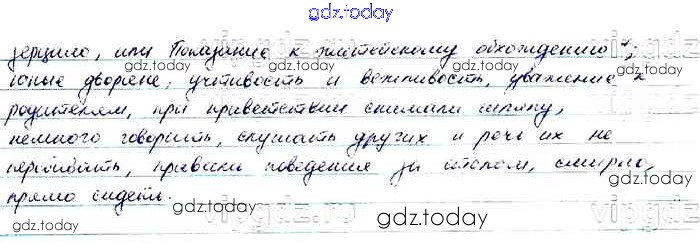 gdz.today
зерцало, или Показание к житейскому обхождению";
юные дворяне; учтивость и вежливость, уважение к
родителям, при приветствии снимали шляпу,
немного говорить, слушать других и речь их не
перебивать, правила поведения за столом, смирно,
прямо сидеть.
gdz.today gdz.today
gdz.today
gdz.today